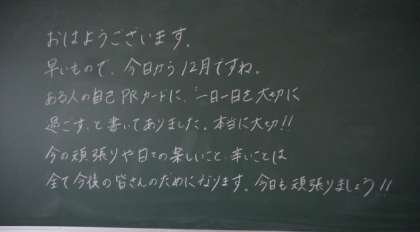 おはようございます。
早いもので、今日から12月ですね。
ある人の自己PRカードに、"一日一日を大切に
過ごす"と書いてありました。本当に大切!!
今の頑張りや日々の楽しいこと、辛いことは
全て今後の皆さんのためになります。今日も頑張りましょう!!